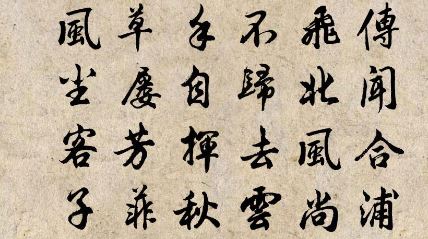 傳聞合浦
飛北風尚
不歸去雲
手自揮秋
草屢芳菲
風塵客子